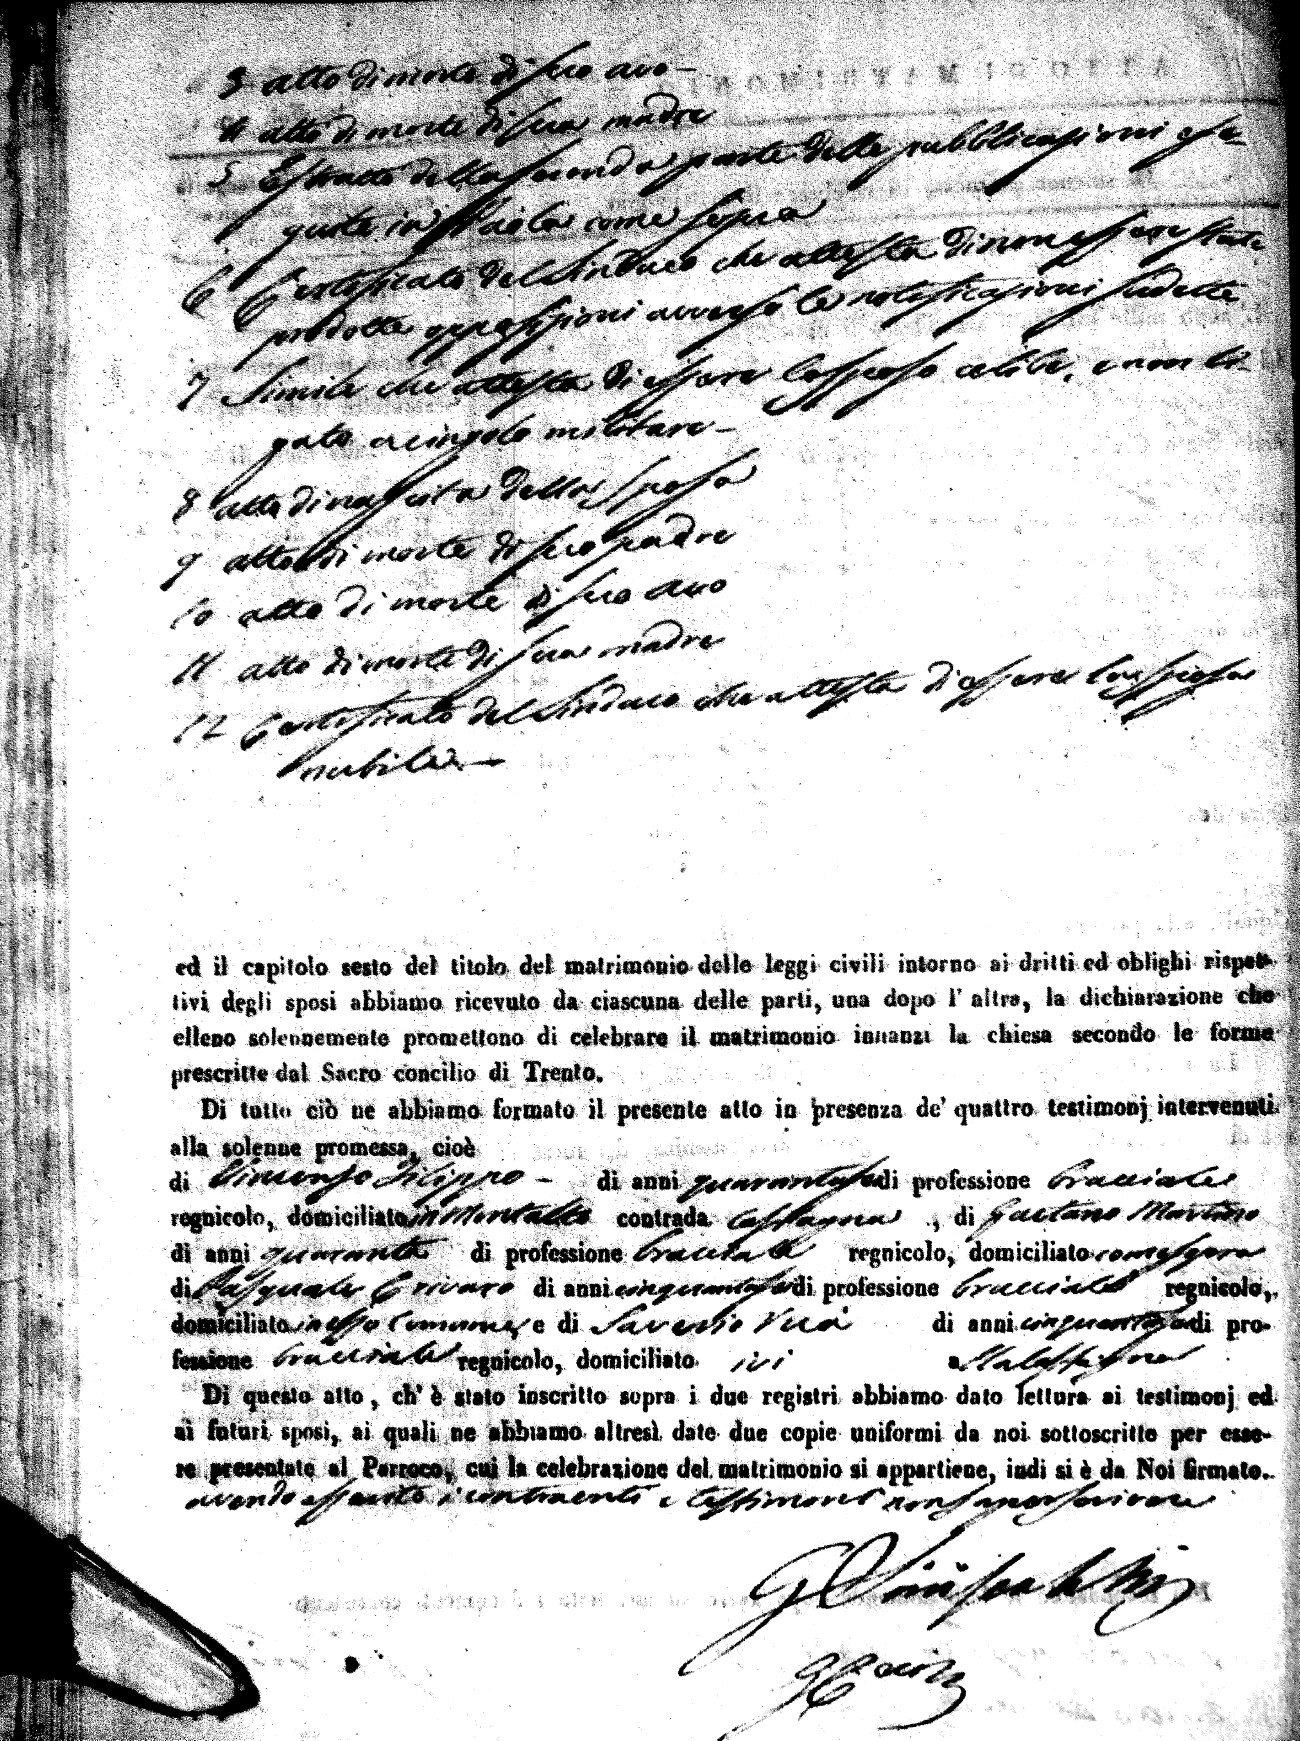 3 atto di morte di suo avo -
4 atto di morte di sua madre
5 Estratto della seconda parte delle pubblicazioni ese-
guite in Paola come sopra
6 Certificato del Sindaco che attesta di non essere state
prodotte opposizioni avverso le notificazioni sudette
7 Simile che attesta di essere lo sposo celibe, e non li-
gato a cingolo militare -
8 atto di nascita della sposa
9 atto di morte di suo padre
10 atto di morte di suo avo
11 atto di morte di sua madre
12 Certificato del Sindaco che attesta di essere la sposa
nubile -
ed il capitolo sesto del titolo del matrimonio delle leggi civili intorno ai dritti ed oblighi rispet-
tivi degli sposi abbiamo ricevuto da ciascuna delle parti, una dopo l' altra, la dichiarazione che
elleno solennemente promettono di celebrare il matrimonio innanzi la chiesa secondo le forme
prescritte dal Sacro concilio di Trento.
Di tutto ciò ne abbiamo formato il presente atto in presenza de' quattro testimonj intervenuti
alla solenne promessa, cioè
di Vincenzo Filippo - di anni quarantasei di professione bracciale
regnicolo, domiciliato in Montalto contrada , di Gaetano Martino
di anni quaranta di professione bracciale regnicolo, domiciliato come sopra
di Pasquale Crivaro di anni cinquantasei di professione bracciale regnicolo,
domiciliato in esso Comune, e di Saverio di anni di pro-
fessione bracciale regnicolo, domiciliato ivi
Di questo atto, ch' è stato inscritto sopra i due registri abbiamo dato lettura ai testimonj ed
ai futuri sposi, ai quali ne abbiamo altresì date due copie uniformi da noi sottoscritte per esse-
re presentate al Parroco, cui la celebrazione del matrimonio si appartiene, indi si è da Noi firmato.
avendo asserito i contraenti e testimoni non saper scrivere